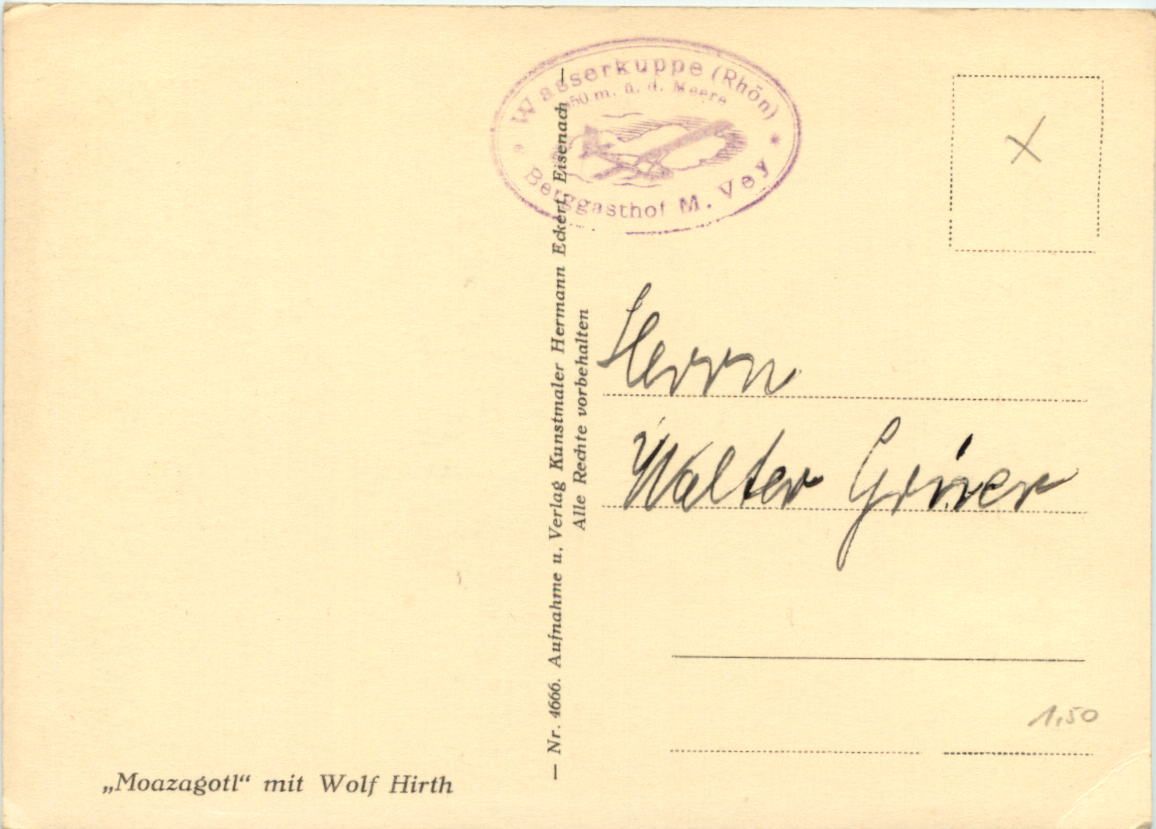 Wasserkuppe (Rhön)
950 m. ü. d. Meere
Berggasthof M. Vey
— Nr. 4666. Aufnahme u. Verlag Kunstmaler Hermann Eckert, Eisenach —
Alle Rechte vorbehalten
Herrn
Walter
1,50
„Moazagotl“ mit Wolf Hirth